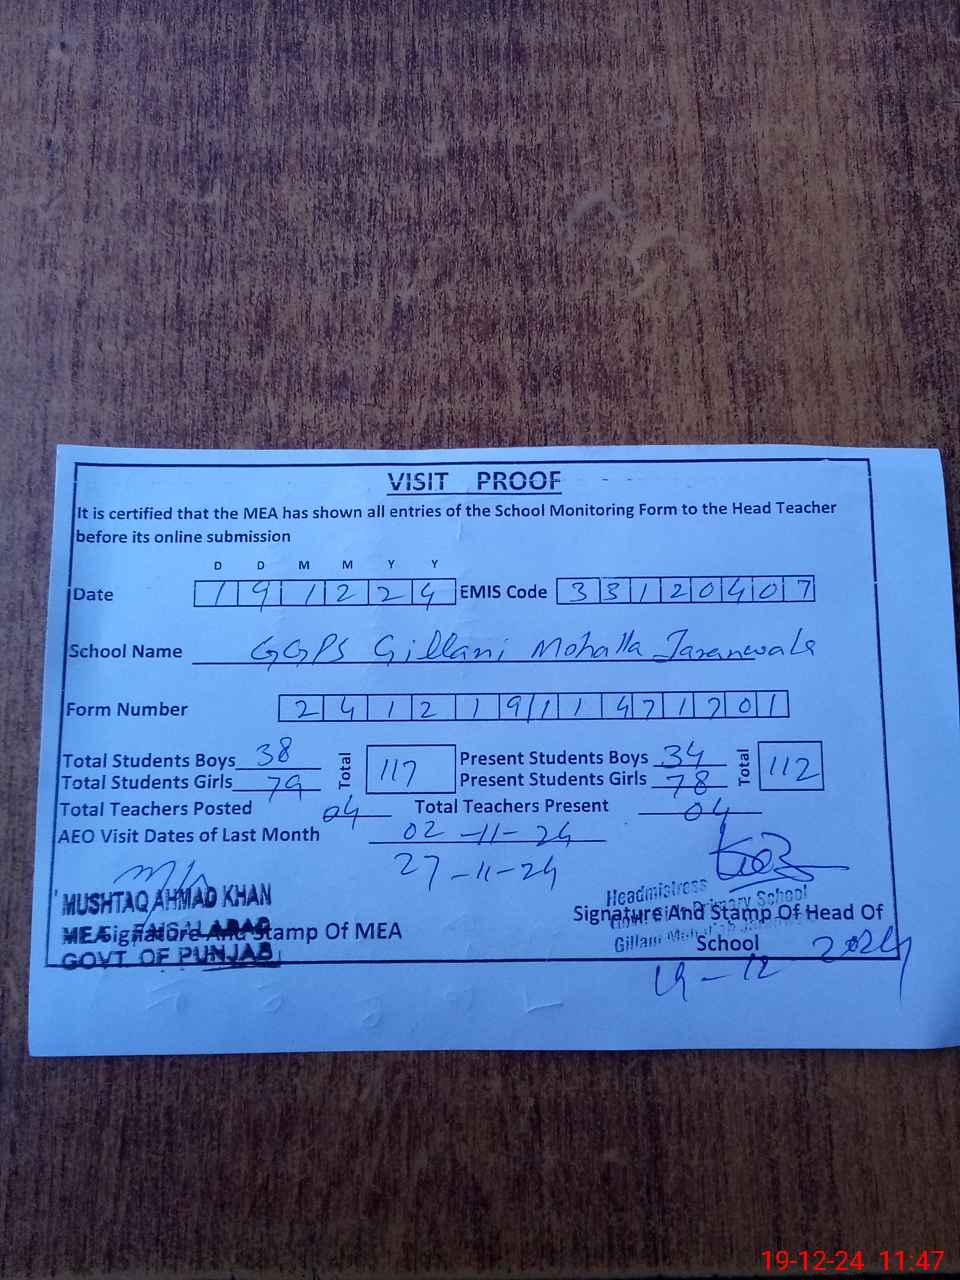 VISIT PROOF
It is certified that the MEA has shown all entries of the School Monitoring Form to the Head Teacher
before its online submission
D D M M Y Y
Date 1 9 1 2 2 4 EMIS Code 3 3 1 2 0 4 0 7
School Name GGPS Gillani Mohalla Jaranwala
Form Number 2 4 1 2 1 9 1 1 4 7 1 7 0 1
Total Students Boys 38 Total 117 Present Students Boys 34 Total 112
Total Students Girls 79 Present Students Girls 78
Total Teachers Posted 04 Total Teachers Present 04
AEO Visit Dates of Last Month 02-11-24
27-11-24
MUSHTAQ AHMAD KHAN
MEA FAISALABAD
GOVT. OF PUNJAB
Signature And Stamp Of MEA
Headmistress
Primary School
Gillani
Signature And Stamp Of Head Of
School
19-12 2024
19-12-24 11:47